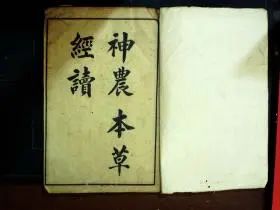 神農本草
經讀